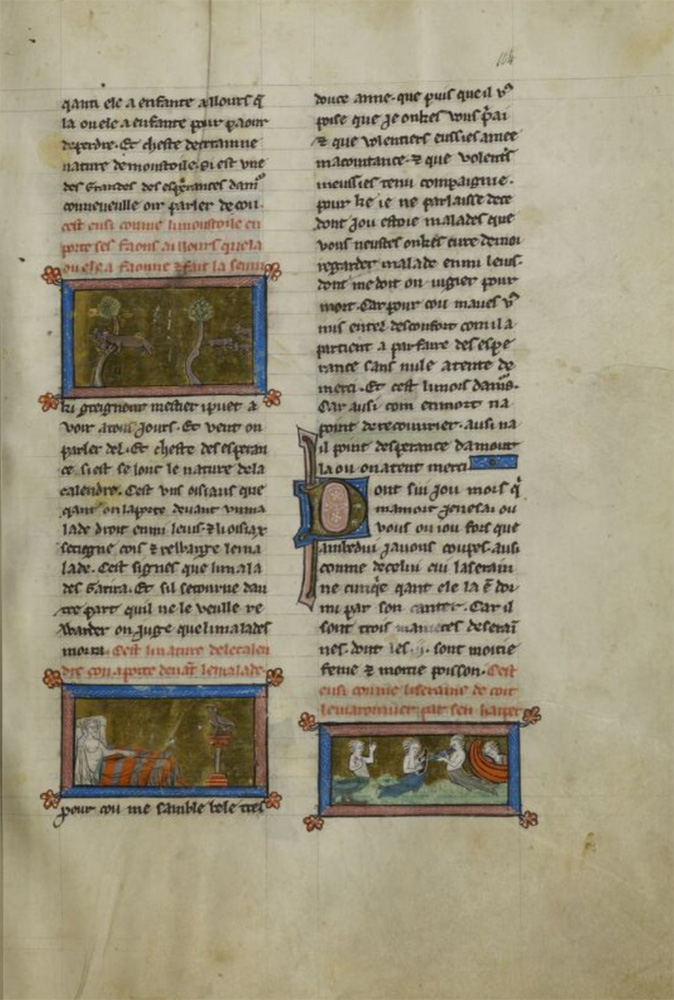 104
quant ele a enfante aillours q̃
la ou ele a enfante pour paour
de perdre. Et cheste destramne
nature de moustoile. si est vne
des Grandes desesperances dam᷒
conneveulle oir parler de cou.
cest ensi comme li moustoile en
porte ses faons aillours que la
ou ele a faonne & fait la senn
ki greignour mestier ipuet a
voir a tous Jours. Et vent on
parler del. Et cheste desesperan
ce si est selonc le nature de la
calendre. Cest vns oisiaus que
quant on laporte deuant vn ma
lade droit enmi leuis. & li oisiax
se tiegne cois & resbarge le ma
lade. Cest signes que li mala
des Garira. Et sil se tourne dau
tre part quil ne le veulle re
Warder on Juge que li malades
morra. Cest li nature de le calen
dre con aporte deuãt le malade.
pour cou me samble bele tres
douce amie. que puis que il v᷒
poise que Je onkes vous p̃ai
& que volentiers eussies amee
macointance. & que volent᷒s
meussies tenu compaignie.
pour ke ie ne parlaisse dece
dont Jou estoie malades que
vous neustes onkes cure de moi
regarder malade enmi leuis.
dont me doit on vigier pour
mort. Car pour cou maues v᷒
mis entel desconfort com il a
partient a parfaite desespe
rance sans nule atente de
merci. Et cest li mors damo᷒s.
Car ausi com en mort na
point de recourrier. ausi na
il point desperance damour
la ou on atent merci
Dont sui Jou mors q̃
mamort Je nesai ou
vous ou iou fors que
ambedui Jauons coupes. ausi
comme de celui cui la serain
ne quant ele la ẽ dor
mi par son canter. Car il
sont trois manieres de serai
nes. dont les .ij. sont moitie
feme & moitie poisson. Cest
ensi comme li seraine decoit
le maronnier par sen harper